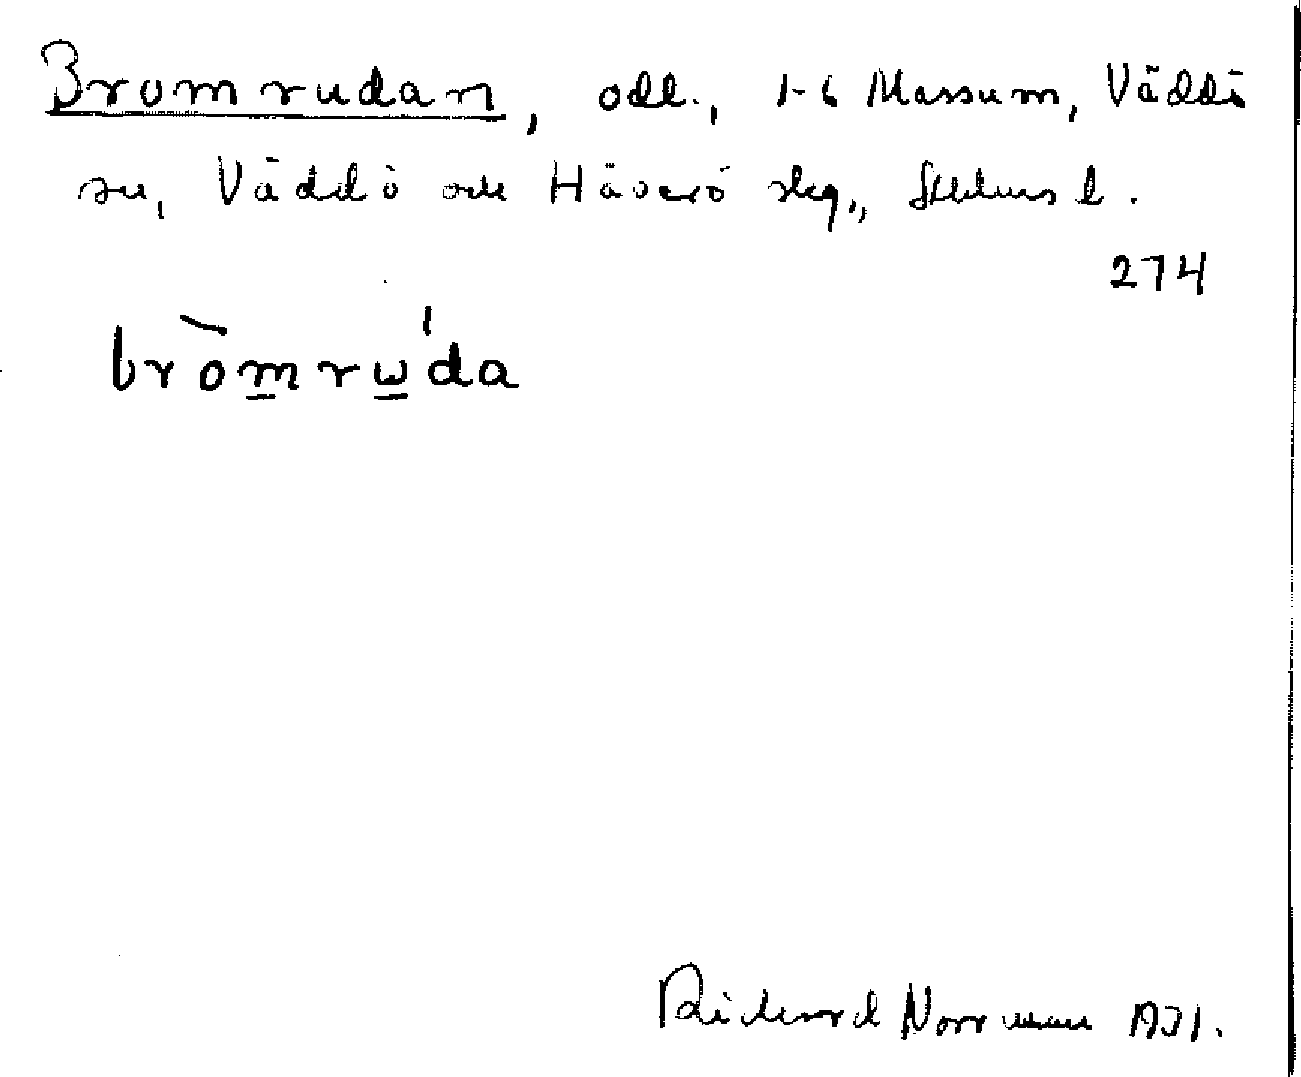 Bromrudan, odl., 1-6 Massum, Väddö
sn, Väddö och Häverö skg., Sthlms l.
274
bròmrẉda
Richard Norrman 1931.